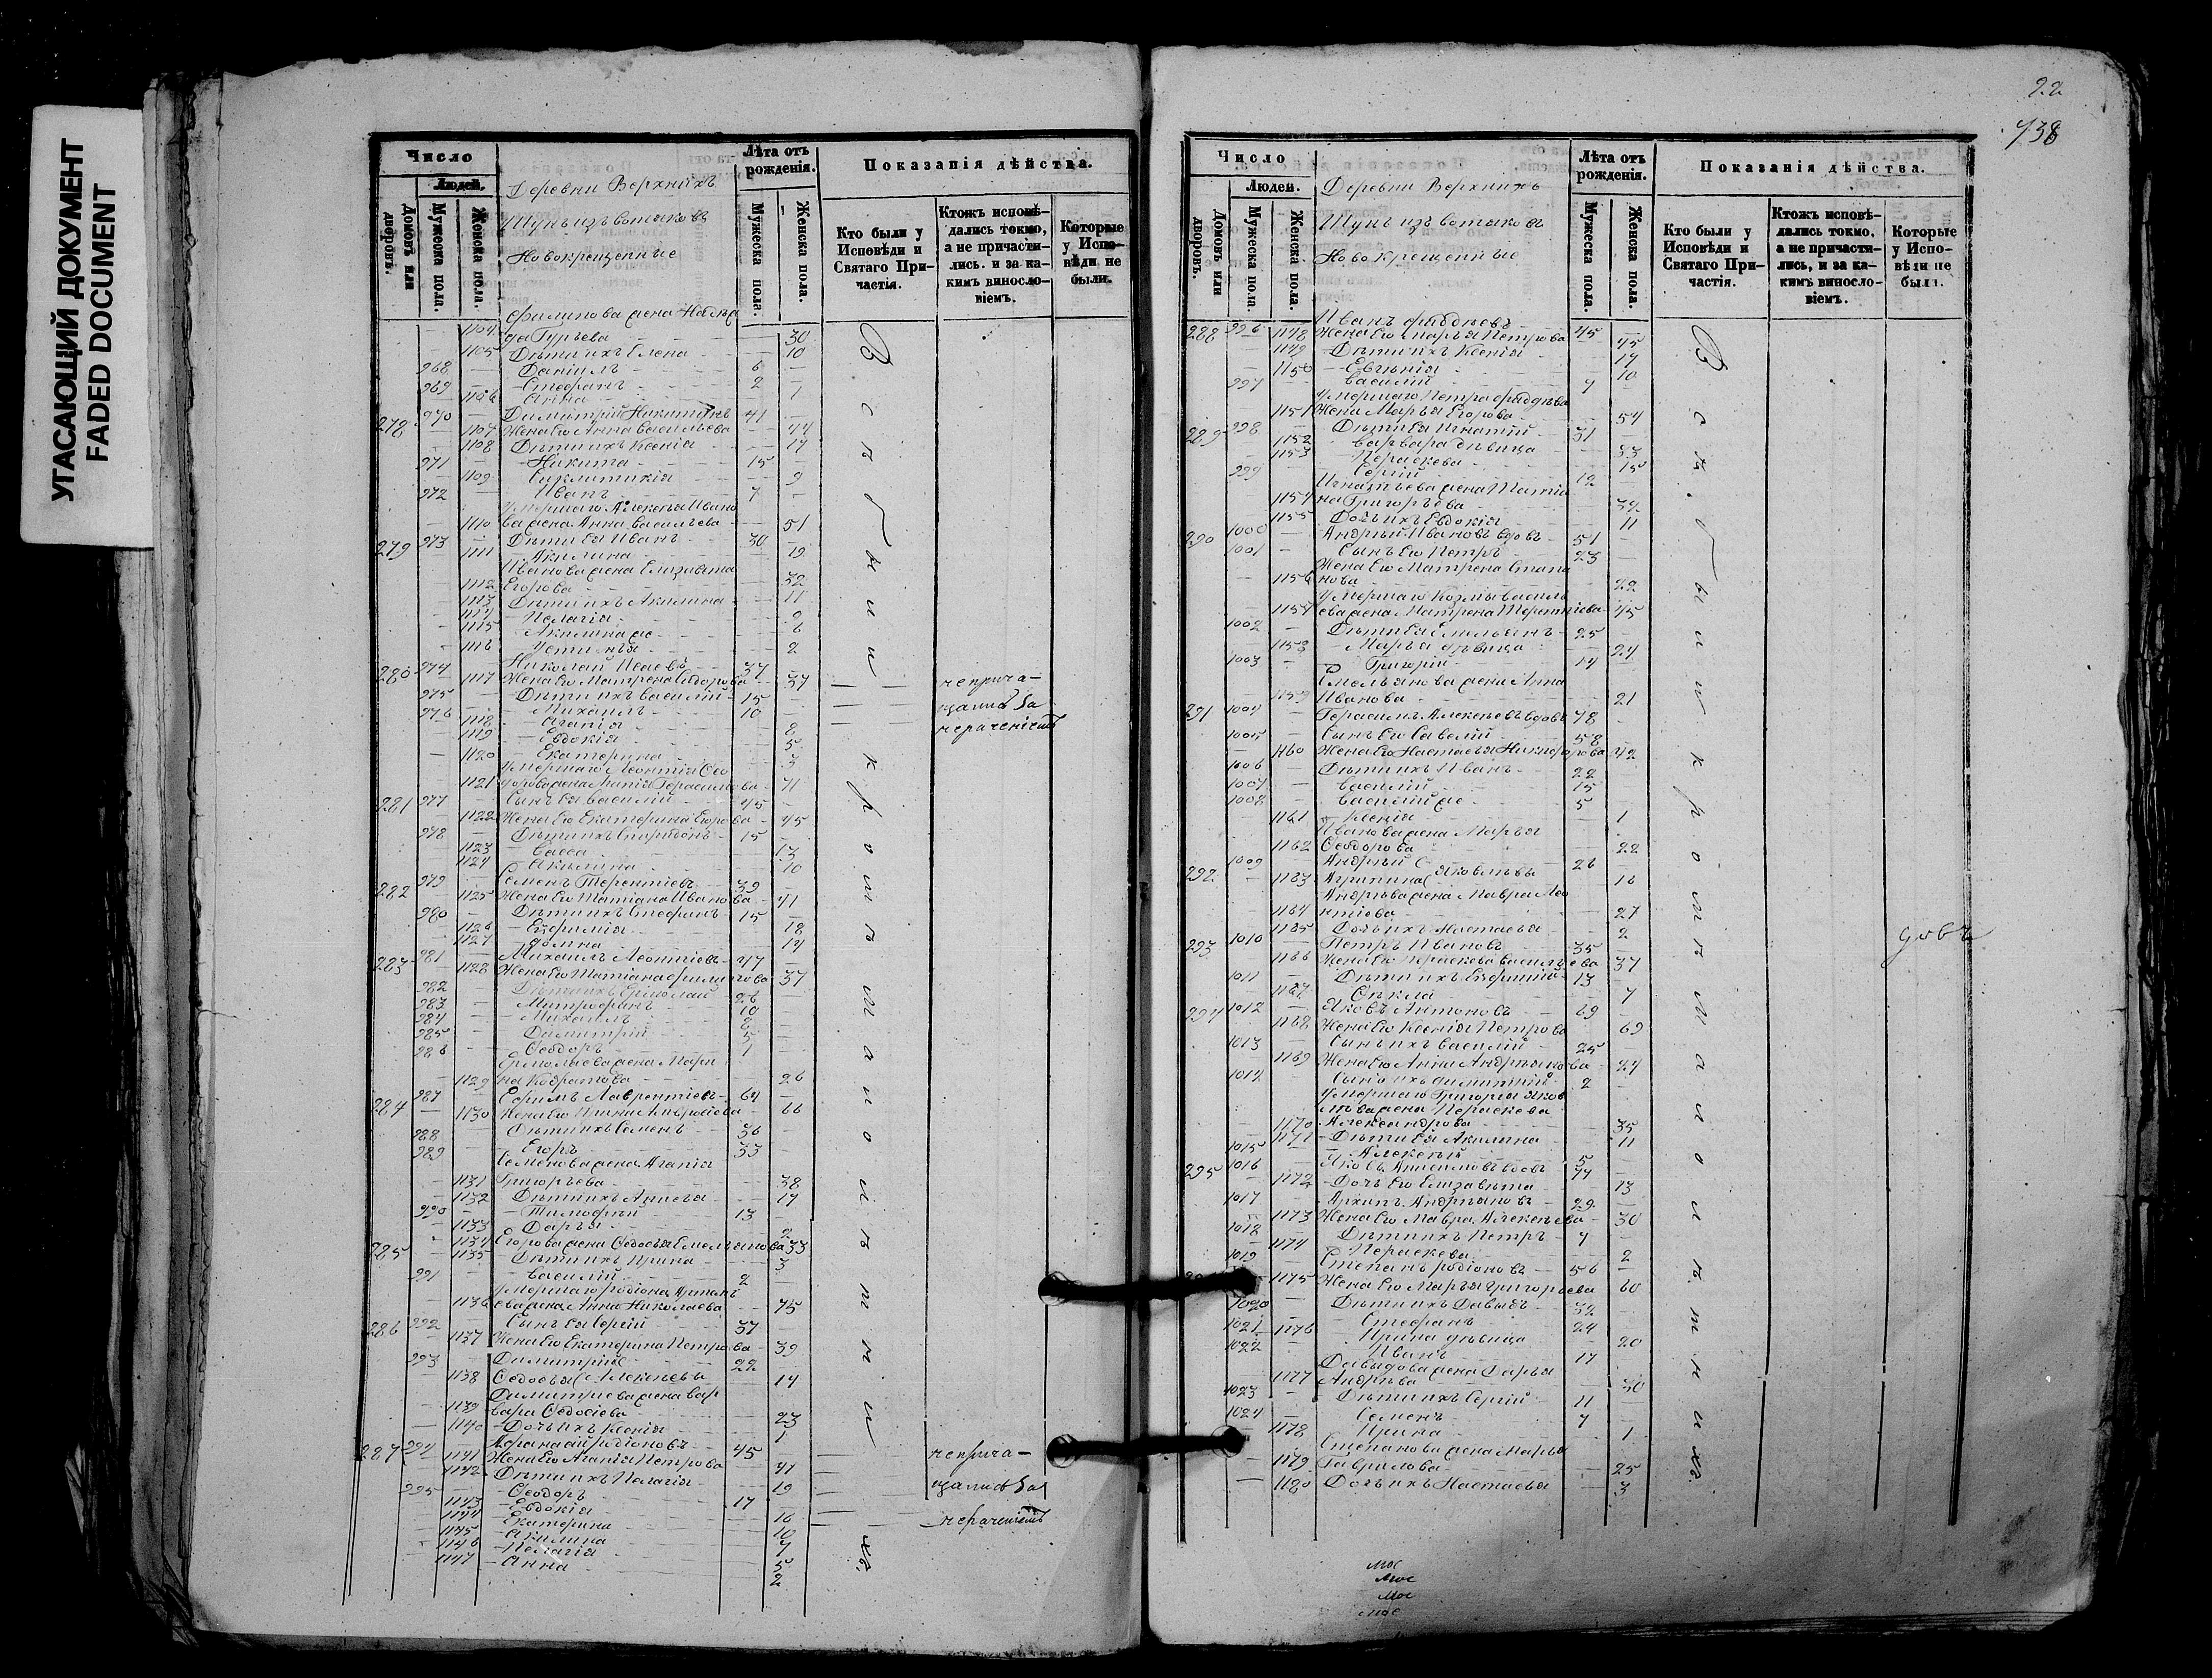 УГАСАЮЩИЙ ДОКУМЕНТ
FADED DOCUMENT
Число
Людей.
Домовъ или дворовъ.
Мужеска пола.
Женска пола.
Деревни Верхнихъ
Шунь изъ вотяковъ
Новокрещенные
Лѣта отъ рожденія.
Мужеска пола.
Женска пола.
Показанія дѣйства.
Кто были у Исповѣди и Святаго Причастія.
Ктожъ исповѣдались токмо, а не причастились. и за какимъ винословіемъ.
Которые у Исповѣди не были.
1104 да Гурьева 30
1105 Дѣти ихъ Елена 10
968 Даніилъ 6
969 Стефанъ 2
1106 Анна 1
278 970 Димитрій Никитинъ 41
1107 Жена его Анна Васильева 44
1108 Дѣти ихъ Ксенія 17
971 Никита 15
1109 Синклитикія 9
972 Иванъ 7
умершаго Алексѣя Ивано
1110 ва жена Анна Васильева 51
279 973 Дѣти ея Иванъ 30
1111 Акилина 19
Иванова жена Елизавета
1112 Егорова 32
1113 Дѣти ихъ Акилина 11
1114 Пелагія 9
1115 Акилина же 6
1116 Устинья 2
280 974 Николай Исаевъ 37
1117 Жена его Матрена Ѳедорова 37
975 Дѣти ихъ Василій 15
976 Михаилъ 10
1118 Агапія 8
1119 Евдокія 5
1120 Екатерина 3
умершаго Леонтія Ѳео
1121 71
281 977 Сынъ ея Василій 45
1122 Жена его Екатерина Егорова 45
978 Дѣти ихъ Спиридонъ 15
1123 Васса 13
1124 Акилина 10
282 979 Семенъ Терентіевъ 39
1125 Жена его Татіана Иванова 41
980 Дѣти ихъ Стефанъ 15
1126 Евфимія 18
1127 Домна 14
283 981 Михаилъ Леонтіевъ 47
1128 Жена его Татіана Филипова 37
982 Дѣти ихъ Ермолай 26
983 Митрофанъ 10
984 Михаилъ 8
985 Димитрій 5
986 Ѳеодоръ 1
Ермолаева жена Мари
1129 на Кодратова 26
284 987 Ефимъ Лаврентіевъ 64
1130 Жена его Ирина Амвросіева 66
988 Дѣти ихъ Семенъ 36
989 Егоръ 33
Семенова жена Агапія
1131 Григорьева 38
1132 Дѣти ихъ Анисья 17
990 Тимофей 13
1133 Дарья 2
1134 Егорова жена Ѳедосья Емельянова 33
285 1135 Дѣти ихъ Ирина 3
991 Василій 2
умершаго Родіона
1136 ева жена Анна Николаева 75
286 992 Сынъ ея Сергій 37
1137 Жена его Екатерина Петрова 39
993 Димитрій 22
1138 Ѳедосья Алексѣевы 14
Димитріева жена Вар
1139 вара Ѳедосіева 23
1140 Дочь ихъ Ксенія 1
287 994 Афанасій Родіоновъ 45
1141 Жена его Агапія Петрова 41
1142 Дѣти ихъ Пелагія 19
995 Ѳеодоръ 17
1143 Евдокія 16
1144 Екатерина 10
1145 Акилина 7
1146 Пелагія 5
1147 Анна 2
Вс
неприча-
щались за
нераченіемъ
неприча-
щались за
нераченіемъ
22
738
Число
Людей.
Домовъ или дворовъ.
Мужеска пола.
Женска пола.
Деревни Верхнихъ
Шунь изъ вотяковъ
Новокрещенные
Лѣта отъ рожденія.
Мужеска пола.
Женска пола.
Показанія дѣйства.
Кто были у Исповѣди и Святаго Причастія.
Ктожъ исповѣдались токмо, а не причастились, и за какимъ винословіемъ.
Которые у Исповѣди не были.
288 996 Иванъ Фаддѣевъ 45
1148 Жена его Марья Петрова 45
1149 Дѣти ихъ Ксенія 17
1150 Евгенія 10
997 Василій 7
умершаго Петра Фаддѣева
1151 Жена Марья Егорова 54
289 998 Дѣти ея Игнатій 31
1152 Варвара дѣвица 33
1153 Параскева 15
999 Сергій 12
Игнатьева жена Татіа
1154 на Григорьева 32
1155 Дочь ихъ Евдокія 11
290 1000 Андрей Ивановъ вдовъ 51
1001 Сынъ его Петръ 23
Жена его Матрена Степа
1156 нова 22
умершаго Козмы Василь
1157 ева жена Матрена Терентіева 45
1002 Дѣти ея Емельянъ 25
1158 Марья дѣвица 24
1003 Григорій 14
Емельянова жена Анна
1159 Иванова 21
291 1004 Герасимъ Алексѣевъ вдовъ 78
1005 Сынъ его Савелій 38
1160 Жена его Настасья Никифорова 42
1006 Дѣти ихъ Иванъ 22
1007 Василій 15
1008 Василій же 5
1161 Ксенія 1
Иванова жена Марья
1162 Ѳеодорова 22
292 1009 Андрей 26
1163 Агрипина Яковлевы 16
Андреева жена Мавра Лео
1164 нтіева 27
1165 Дочь ихъ Настасья 2
293 1010 Петръ Ивановъ 35
1166 Жена его Праскева Васильева 37
1011 Дѣти ихъ Евфимій 13
1167 Ѳекла 7
294 1012 Яковъ Антоновъ 69
1168 Жена его Ксенія Петрова 69
1013 Сынъ ихъ Василій 25
1169 Жена его Анна Андреянова 24
1014 Сынъ ихъ Димитрій 2
умершаго Григорія Яков
лева жена Параскева
1170 Александрова 35
1171 Дѣти ея Акилина 11
1015 Алексѣй 5
295 1016 Яковъ Анисимовъ вдовъ 71
1172 Дочь его Елизавета 13
1017 Архипъ Андреяновъ 29
1173 Жена его Мавра Алексѣева 30
1018 Дѣти ихъ Петръ 7
1174 Параскева 2
1019 Степанъ Родіоновъ 56
1175 Жена его Марья Григорьева 60
1020 Дѣти ихъ Давыдъ 32
1021 Стефанъ 24
1176 Ирина дѣвица 20
1022 Иванъ 17
Давыдова жена Дарья
1177 Андрѣева 30
1023 Дѣти ихъ Сергій 11
1024 Семенъ 7
1178 Ирина 1
Степанова жена Марья
1179 Гаврилова 25
1180 Дочь ихъ Настасья 3
мое
мое
мое
мое